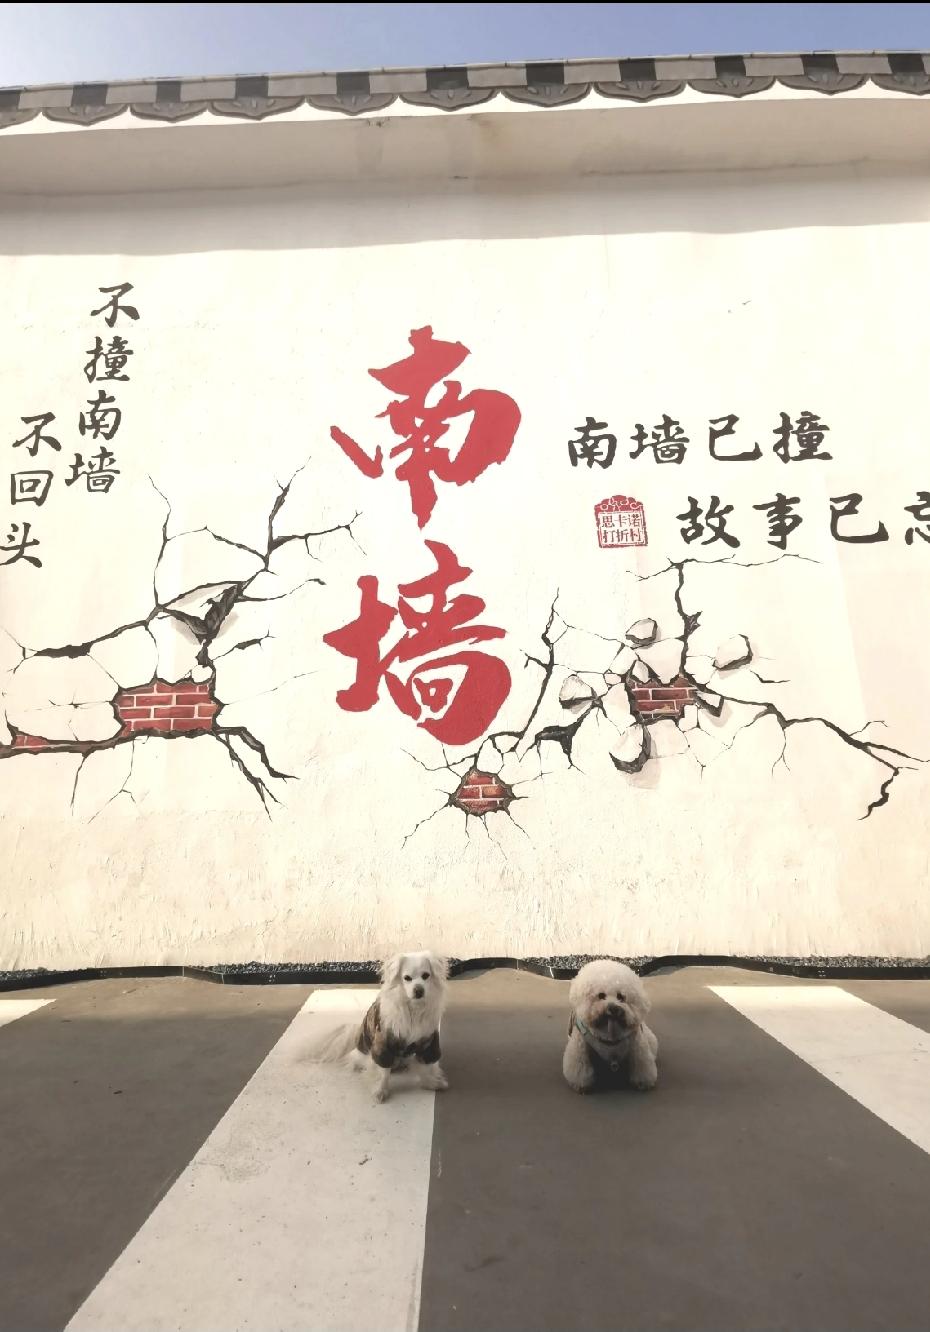 不撞南墙
不回头
南墙
南墙已撞
故事已忘
思卡诺
打折村